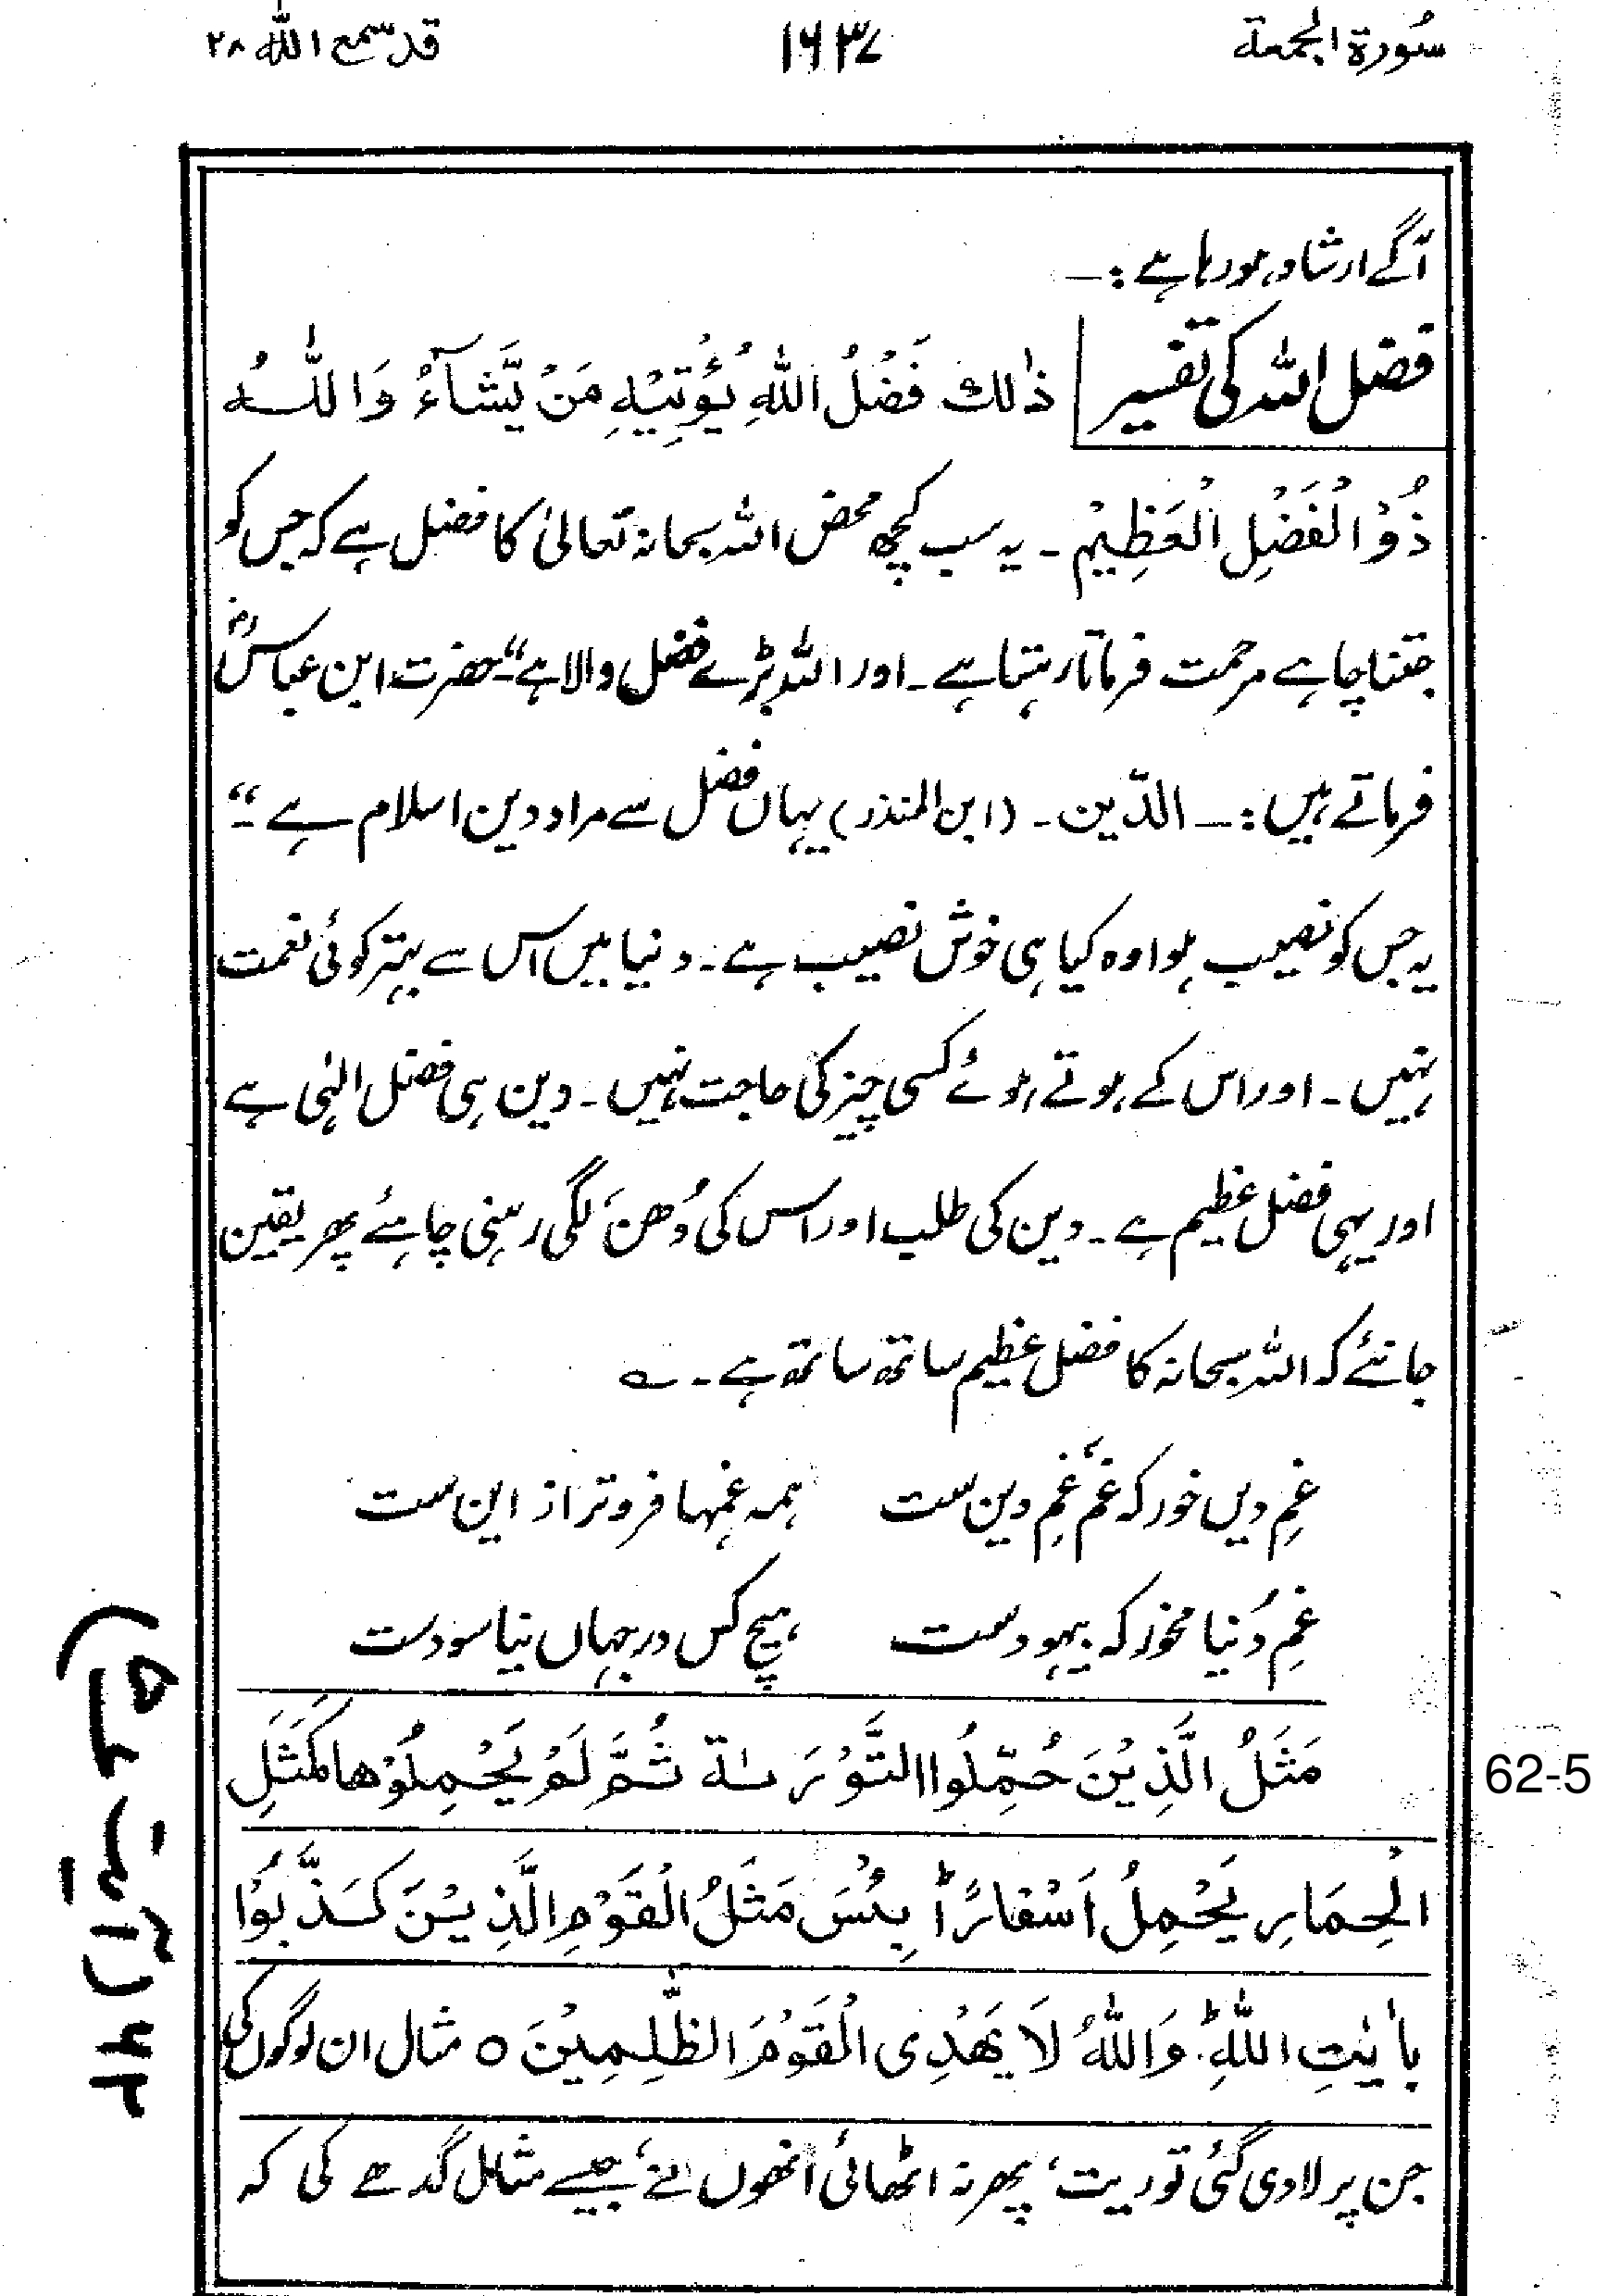 سُورۃ الجمعۃ ۱۶۳۷ قد سمع اللہ ۲۸
آگے ارشاد ہو رہا ہے :۔
فضل اللہ کی تفسیر ذٰلِكَ فَضْلُ اللّٰهِ یُؤْتِیْهِ مَنْ یَّشَآءُ وَاللّٰہُ
ذُوْ الْفَضْلِ الْعَظِیْمِ۔ یہ سب کچھ محض اللہ سبحانہ تعالیٰ کا فضل ہے کہ جس کو
جتنا چاہے مرحمت فرماتا رہتا ہے۔ اور اللہ بڑے فضل والا ہے“۔ حضرت ابن عباسؓ
فرماتے ہیں :۔ الدّین۔ (ابن المنذر) یہاں فضل سے مراد دین اسلام ہے۔“
یہ جس کو نصیب ہوا وہ کیا ہی خوش نصیب ہے۔ دنیا میں اس سے بہتر کوئی نعمت
نہیں۔ اور اس کے ہوتے ہوئے کسی چیز کی حاجت نہیں۔ دین ہی فضل الٰہی ہے
اور یہی فضل عظیم ہے۔ دین کی طلب اور اس کی دُھن لگی رہنی چاہئے پھر یقین
جانئے کہ اللہ سبحانہ کا فضل عظیم ساتھ ساتھ ہے۔ ؎
غمِ دیں خور کہ غم غمِ دین ست ہمہ غمہا فروتر از این ست
غمِ دُنیا مخور کہ بیہودست ہیچ کس در جہاں نیاسودست
مَثَلُ الَّذِیْنَ حُمِّلُوا التَّوْرٰىةَ ثُمَّ لَمْ یَحْمِلُوْهَا كَمَثَلِ
62-5
الْحِمَارِ یَحْمِلُ اَسْفَارًاؕ بِئْسَ مَثَلُ الْقَوْمِ الَّذِیْنَ كَذَّبُوْا
بِاٰیٰتِ اللّٰهِؕ وَاللّٰهُ لَا یَهْدِی الْقَوْمَ الظّٰلِمِیْنَ ○ مثال ان لوگوں کی
جن پر لادی گئی توریت، پھر نہ اٹھائی اُنھوں نے، جیسے مثال گدھے کی کہ
۶۲ (آیت ۵)